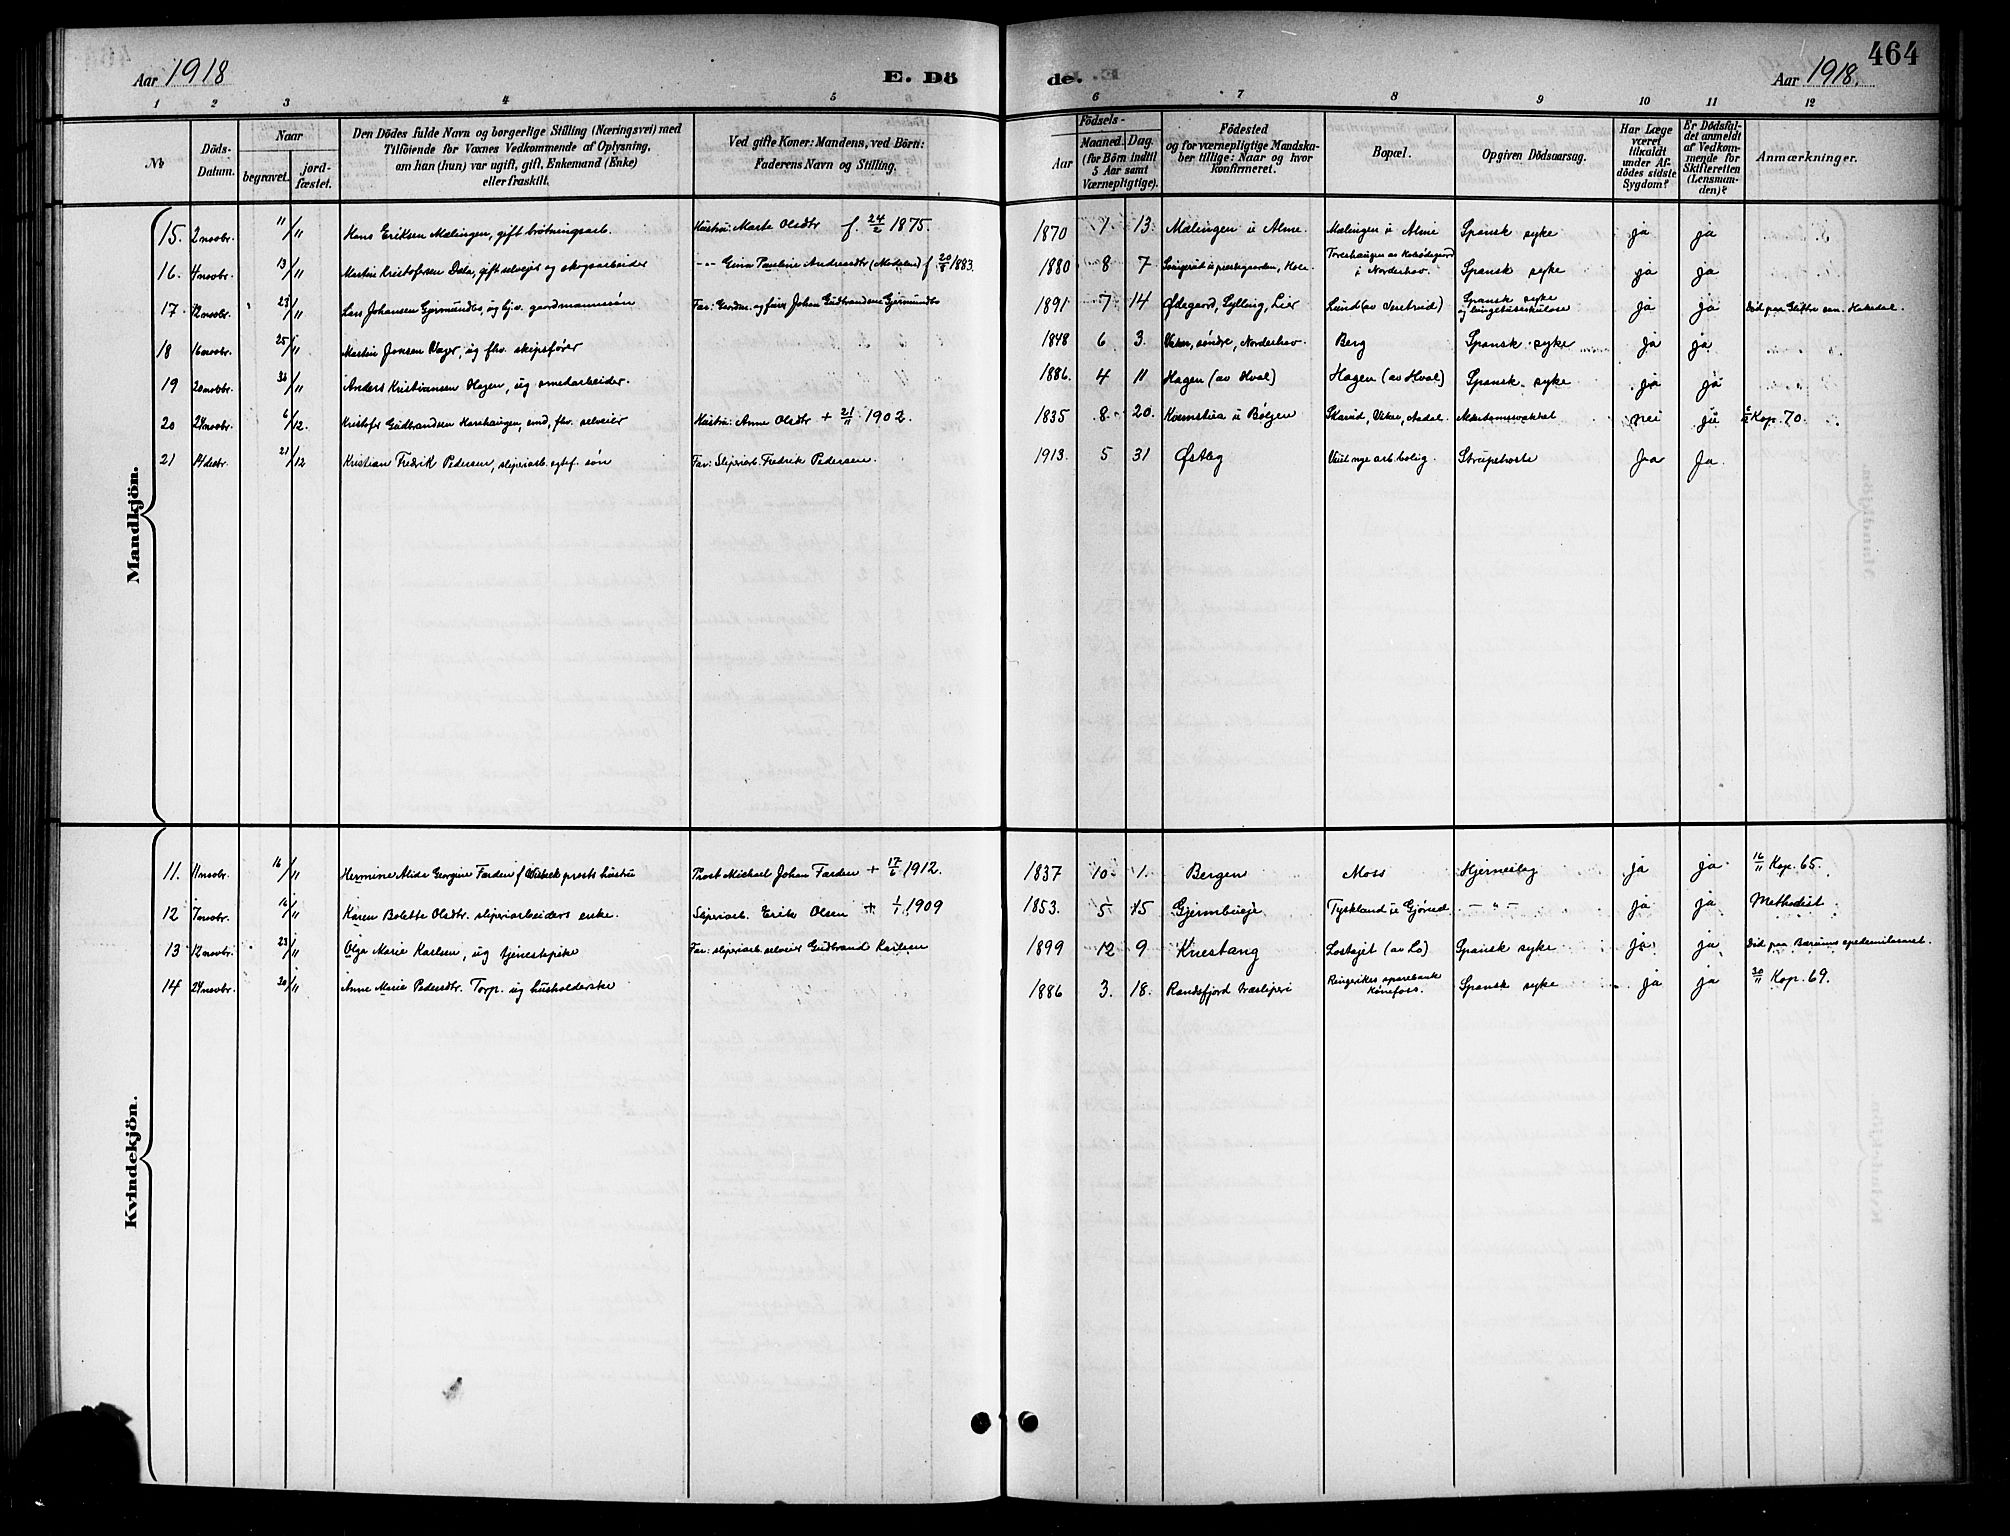 Aar 1918
E. Dö
de.
Aar 1918.
464
1 2 3 4 5 6 7 8 9 10 11 12
No
Döds-Datum.
Naar
begravet.
jord-fæstet.
Den Dödes fulde Navn og borgerlige Stilling (Næringsvei) med
Tilföiende for Voxnes Vedkommende af Oplysning,
om han (hun) var ugift, gift, Enkemand (Enke)
eller fraskilt.
Ved gifte Koner: Mandens, ved Börn:
Faderens Navn og Stilling.
Födsels-
Aar
Maaned. Dag.
(for Börn indtil
5 Aar samt
Værnepligtige).
Födested
og for værnepligtige Mandska-
ber tillige: Naar og hvor
konfirmeret.
Bopæl.
Opgiven Dödsaarsag.
Har Læge
været
tilkaldt
under Af-
dödes sidste
Sygdom?
Er Dödsfal-
det anmeldt
af Vedkom-
mende for
Skifteretten
(Lensman-
den)?
Anmærkninger.
Mandkjön.
15. 2 novbr. 11/11 Hans Eriksen Mælingen, gift brøtningsarb. Hustru: Marte Olsdtr f. 24/2 1875. 1870 7 13. Mælingen u Alme. Mælingen u Alme Spansk syke ja ja
16. 4 novbr. 13/11 Martin Kristofersen Dala, gift selveier og skogsarbeider -"- Gina Pauline Andreasdtr (Modalen) f 20/8 1883. 1880 8 7 prestegaarden, Hole i Norderhov. Spansk syke ja ja
17. 12 novbr. 23/11 Lars Johansen Gjermundbo, ug hjv. gaardmannssøn Far: Gaardm. og Johan Gudbrandsen Gjermundbo 1891 7 14 Ødegaard, Sylling, Lier Lund (av Veretruid) Spansk syke og lungetuberkulose ja ja Død paa Glittre san. Hakedal.
18 16 novbr. 25/11 Martin Jonsen Vager, ug fhv. skipsfører 1848 6 3. Viker, søndre, Norderhov. Berg Spansk syke ja ja
19 20 novbr. 30/11 Anders Kristiansen Hagen, ug smedarbeider. 1886. 4 11 Hagen (av Hval) Hagen (av Hval) Spansk syke ja ja
20 24 novbr. 6/12. Kristofr Gudbrandsen Karshaugen, emd, fhv. selveier Hustru: Anne Olsdtr + 21/11 1902. 1835 8 20. Kornstua u Bølgen Skarud, Viker, Aadal. Alderdomssvakhet nei ja Kop. 70.
21 14 desbr. 21/12 Kristian Fredrik Pedersen, sliperiarb. egtef. søn Far: Sliperiarb. Fredrik Pedersen. 1913. 5 31 Østby nye arb. bolig. Strupehoste Ja Ja.
Kvindekjön.
11. 11 novbr. 16/11 Hermine Alida Georgine Farden prosts hustru Prost Michael Johan Farden + 17/6 1912. 1837 10 1. Bergen Moss Hjerneslag ja ja 16/11 Kop. 65.
12 7 novbr. 16/11 Karen Bolette Olsdtr. sliperiarbeiders enke. Sliperiarb. Erik Olsen + 1/1 1909 1853. 5 15 Gjermbueje Tyskland u Gjørud - " - ja ja Methodist
13 12 novbr. 23/11 Olga Marie Karlsen, ug tjenestepike Far: sliperiarb. selveier Gudbrand Karlsen 1899 12 9 Knestang Lostajet (av Lo) Spansk syke ja ja Død paa Bærums epedemilasaret.
14 24 novbr. 30/11 Anne Marie Pedersdtr. Torp. ug husholderske 1886 3. 18. Randsfjord træsliperi Ringerikes sparebank Hønefoss. Spansk syke ja ja 30/11 Kop. 69.